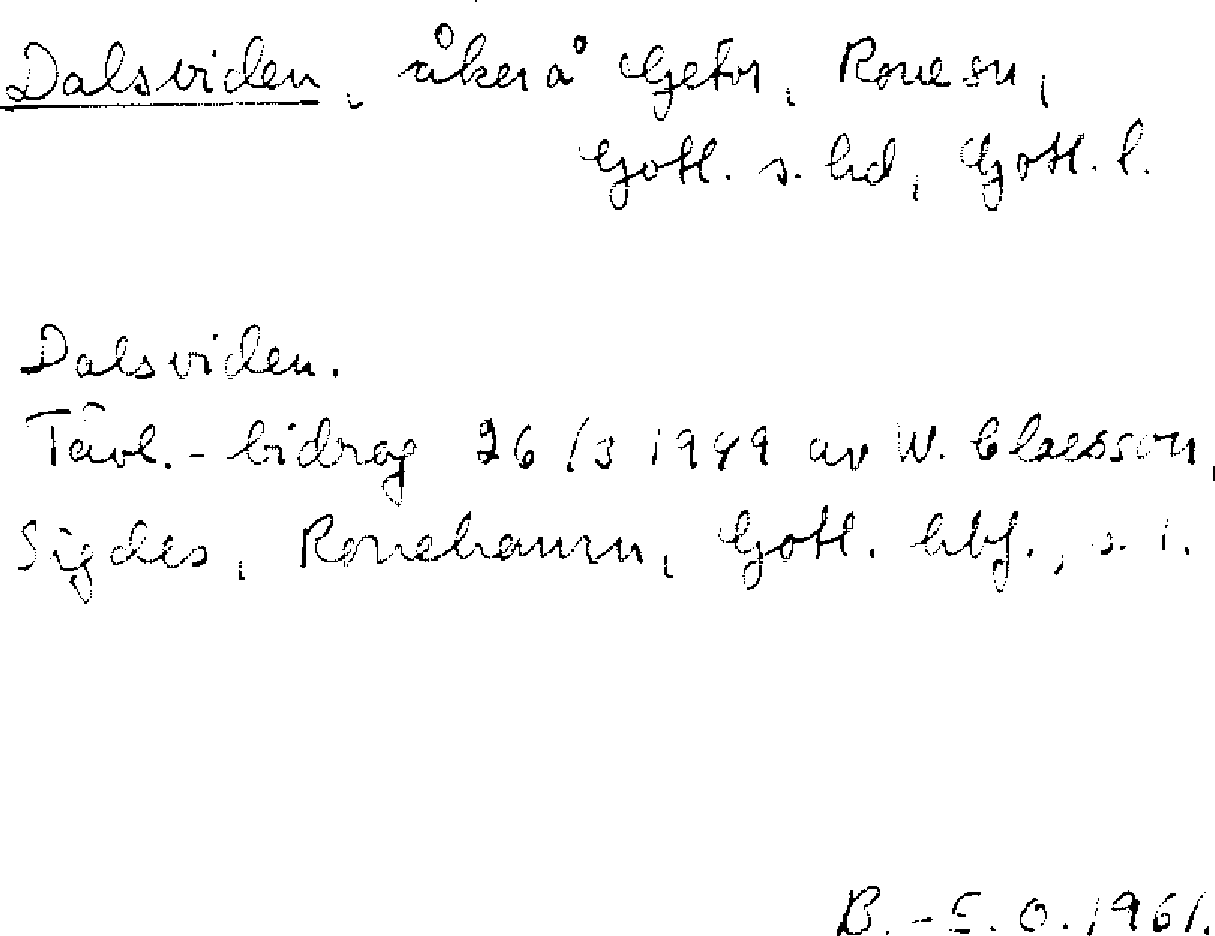 Dalsviden, åker å Getor, Rone sn,
Gotl. s. hd, Gotl. l.
Dalsviden.
Tävl.-bidrag 26/3 1949 av W. Claesson,
Sigdes, Ronehamn, Gotl. hbf., s. 1.
B.-S. O. 1961.